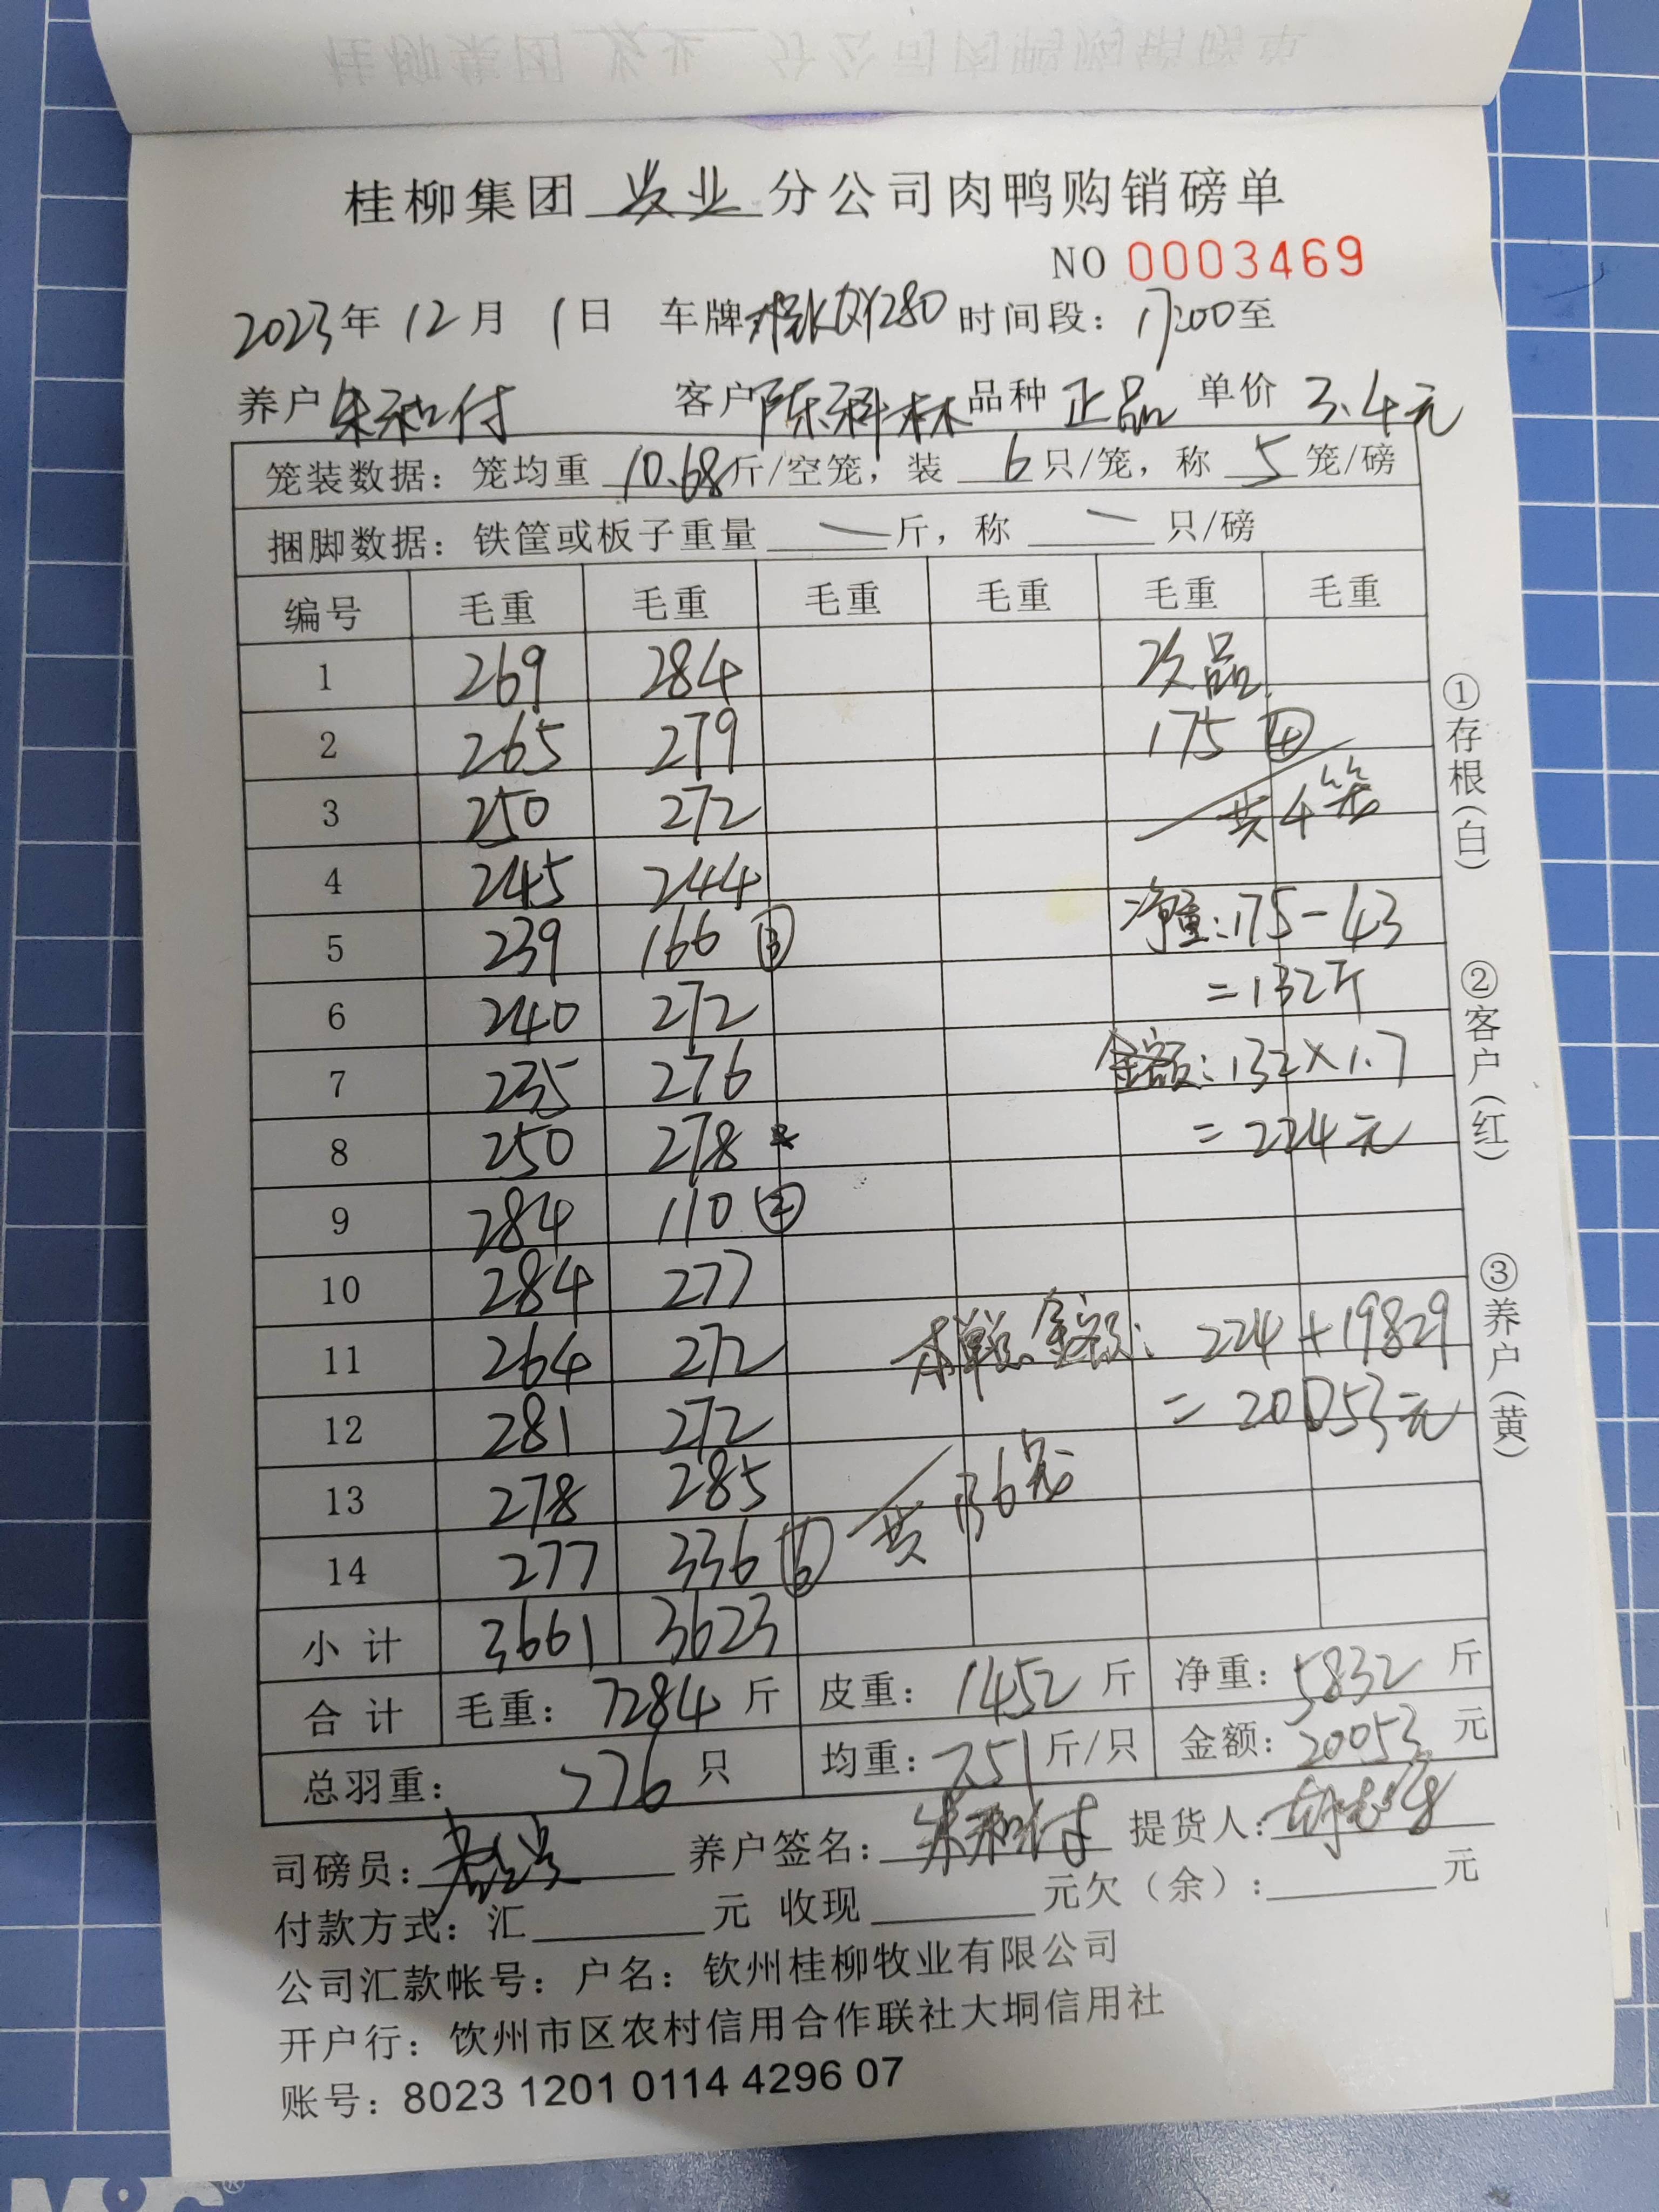 桂柳集团 牧业 分公司肉鸭购销磅单
NO 0003469
2023年 12月 1日 车牌 QY280 时间段：17:00至
养户 朱和付 客户 陈科林 品种 正品 单价 3.4元
笼装数据：笼均重 10.68斤/空笼，装 6只/笼，称 5笼/磅
捆脚数据：铁筐或板子重量 — 斤，称 — 只/磅
编号 毛重 毛重 毛重 毛重 毛重 毛重
1 269 284 次品
2 265 279 175 ④
3 250 272 共4笼
4 245 244
5 239 166 ③ 净重：175-43
6 240 272 =132斤
7 235 276 金额：132×1.7
8 250 278 =224元
9 284 110 ②
10 284 277
11 264 272 本单总金额：224+19829
12 281 272 =20053元
13 278 285 共136笼
14 277 336 ⑥
小计 3661 3623
合计 毛重：7284斤 皮重：1452斤 净重：5832斤
总羽重：776只 均重：7.51斤/只 金额：20053元
司磅员： 养户签名：朱和付 提货人：
付款方式：汇 元 收现 元欠（余）： 元
公司汇款帐号：户名：钦州桂柳牧业有限公司
开户行：钦州市区农村信用合作联社大垌信用社
账号：8023 1201 0114 4296 07
①存根（白）
②客户（红）
③养户（黄）